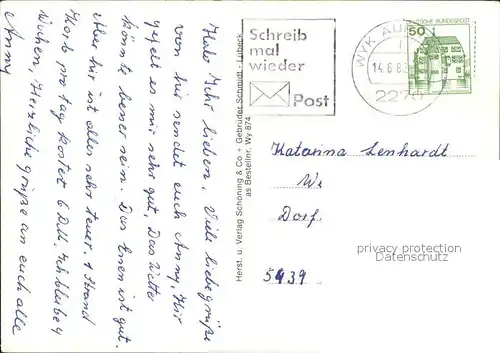 Halo Ihr lieben. Viele liebe grüße
von hir sendet euch Anny, Hir
gefelt es mir sehr gut, Das Wetter
könnte besser sein. Das Essen ist gut.
Aber hir ist alles sehr teuer. 1 Strand
Korb pro tag kostet 6 DM. Ich bleibe 4
Wochen, Herzliche grüße an euch alle
Anny
Herst. u. Verlag Schöning & Co + Gebrüder Schmidt - Lübeck
as Bestellnr. Wy 874
Schreib
mal
wieder
Post
WYK AUF
14.8.8
2270
DEUTSCHE BUNDESPOST
50
Katarina Lenhardt
We
Dorf.
5439
privacy protection
Datenschutz